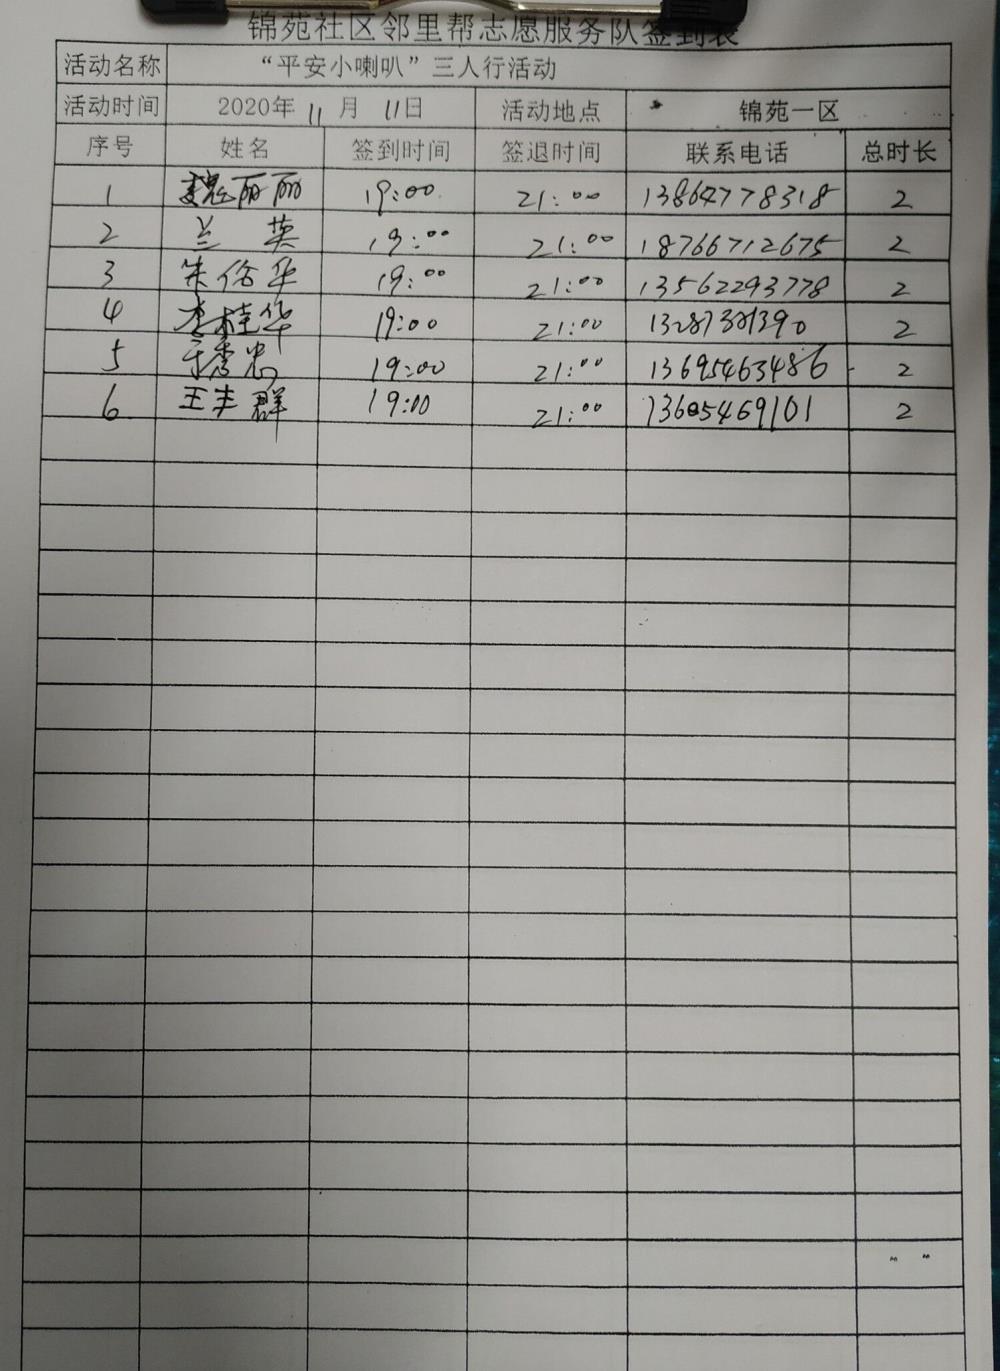 锦苑社区邻里帮志愿服务队签到表
活动名称 “平安小喇叭”三人行活动
活动时间 2020年 11 月 11日 活动地点 锦苑一区
序号 姓名 签到时间 签退时间 联系电话 总时长
1 魏丽丽 19:00 21:00 13864778318 2
2 兰英 19:00 21:00 18766712675 2
3 朱俗华 19:00 21:00 13562293778 2
4 李桂华 19:00 21:00 2
5 于秀忠 19:00 21:00 13695463486 2
6 王丰群 19:00 21:00 13605469101 2